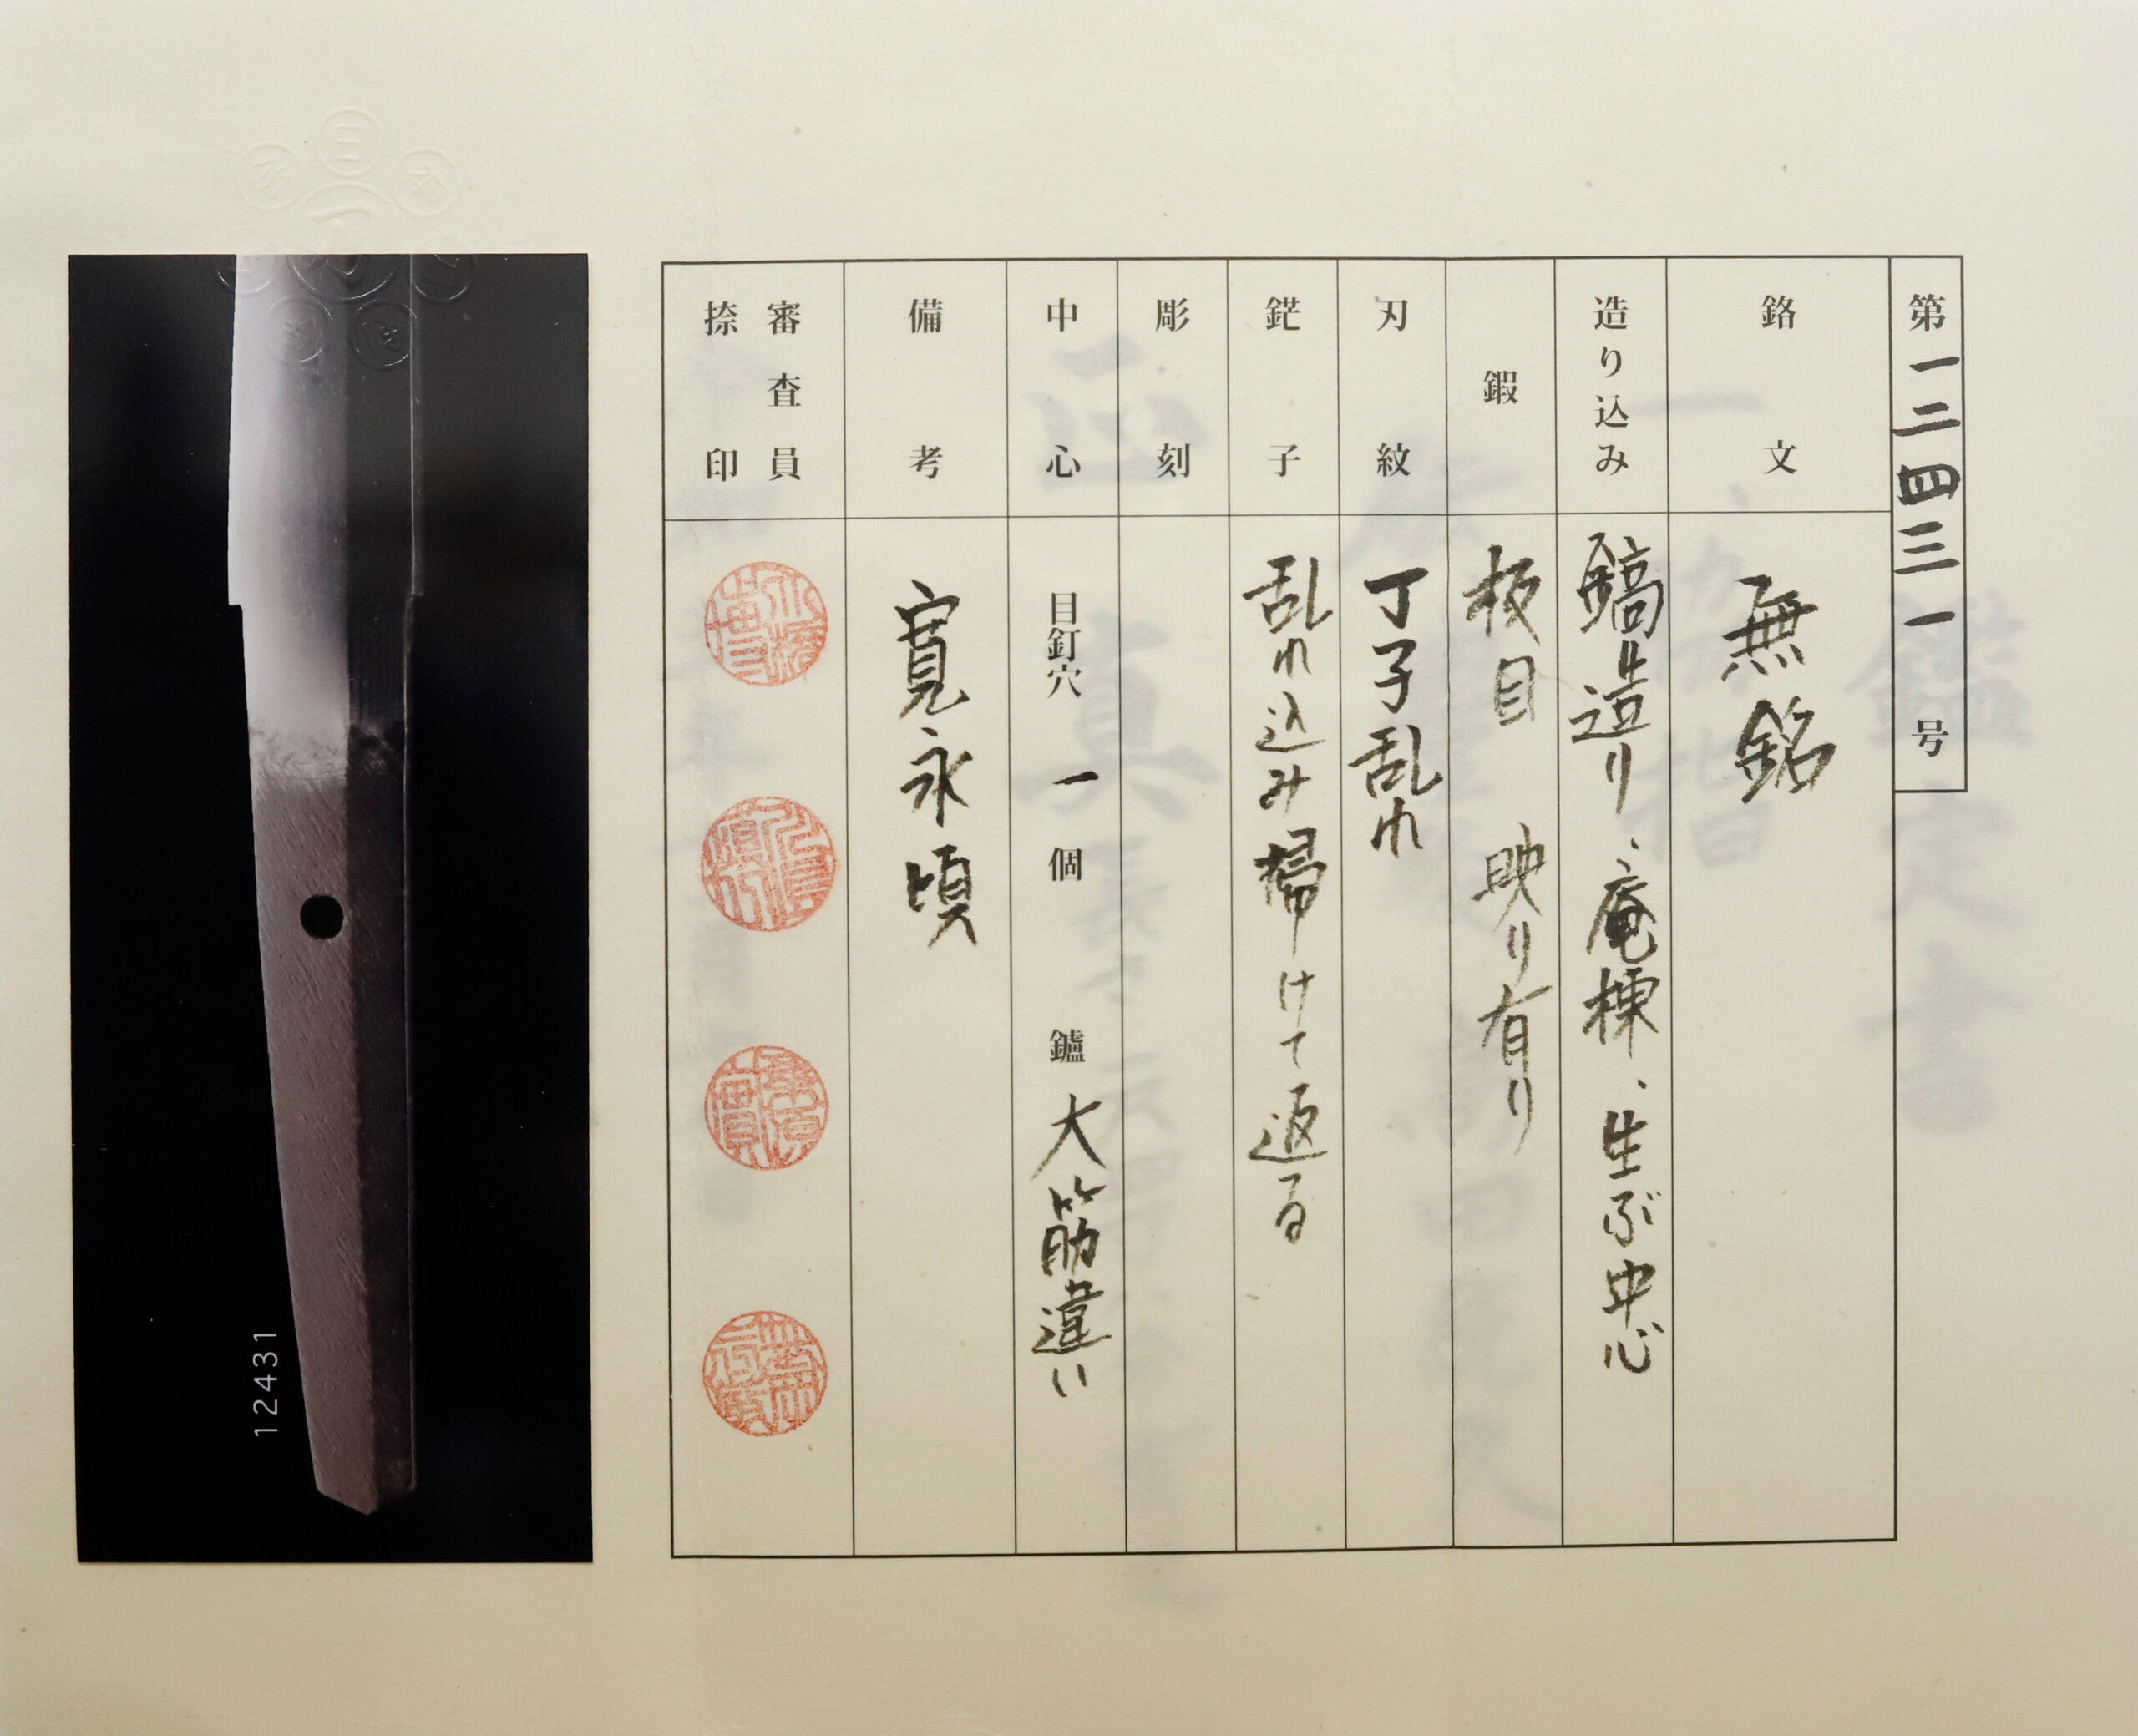 第一二四三一号
銘文 無銘
造り込み 鎬造り、庵棟、生ぶ中心
鍜 板目 映り有り
刃紋 丁子乱れ
鋩子 乱れ込み掃けて返る
彫刻
中心 目釘穴 一 個 鑢 大筋違い
備考 寛永頃
審査員
捺印
12431